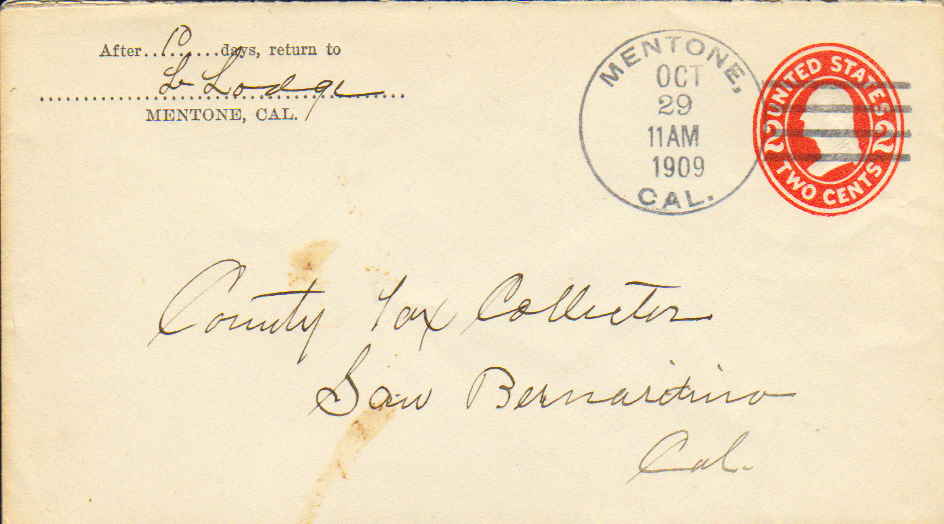 After..10.....days, return to
Lodge
MENTONE, CAL.
MENTONE,
OCT
29
11AM
1909
CAL.
UNITED STATES
2 2
TWO CENTS
County Tax Collector
San Bernardino
Cal.